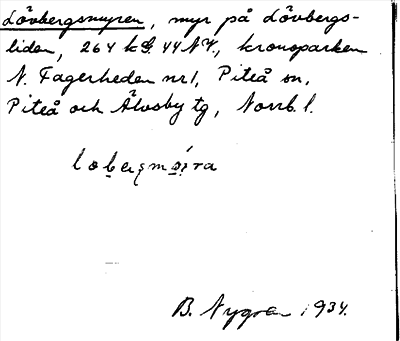 Lövbergsmyren, myr på Lövbergs-
liden, 264 kS. 44 NV., kronoparken
N. Fagerheden nr 1, Piteå sn,
Piteå och Älvsby tg, Norrb. l.
B. Nygren 1934.